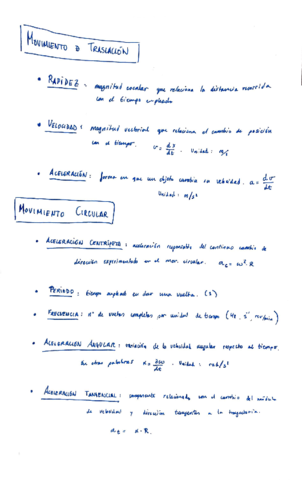 MOVIMIENTO D TRASLACIÓN
• RAPIDEZ : magnitud escalar que relaciona la distancia recorrida
con el tiempo empleado
• VELOCIDAD : magnitud vectorial que relaciona el cambio de posición
con el tiempo. v = dr/dt . Unidad : m/s
• ACELERACIÓN : forma en que un objeto cambia su velocidad. a = dv/dt
Unidad : m/s²
MOVIMIENTO CIRCULAR
• ACELERACIÓN CENTRÍPETA : aceleración responsable del continuo cambio de
dirección experimentado en el mov. circular. ac = w² · R
• PERIODO : tiempo empleado en dar una vuelta. (s)
• FRECUENCIA : nº de vueltas completas por unidad de tiempo (Hz, s⁻¹, rev/min)
• ACELERACIÓN ANGULAR : variación de la velocidad angular respecto al tiempo.
En otras palabras α = dw/dt . Unidad : rad/s²
• ACELERACIÓN TANGENCIAL : componente relacionada con el cambio del módulo
de velocidad y dirección tangente a la trayectoria.
at = α · R.